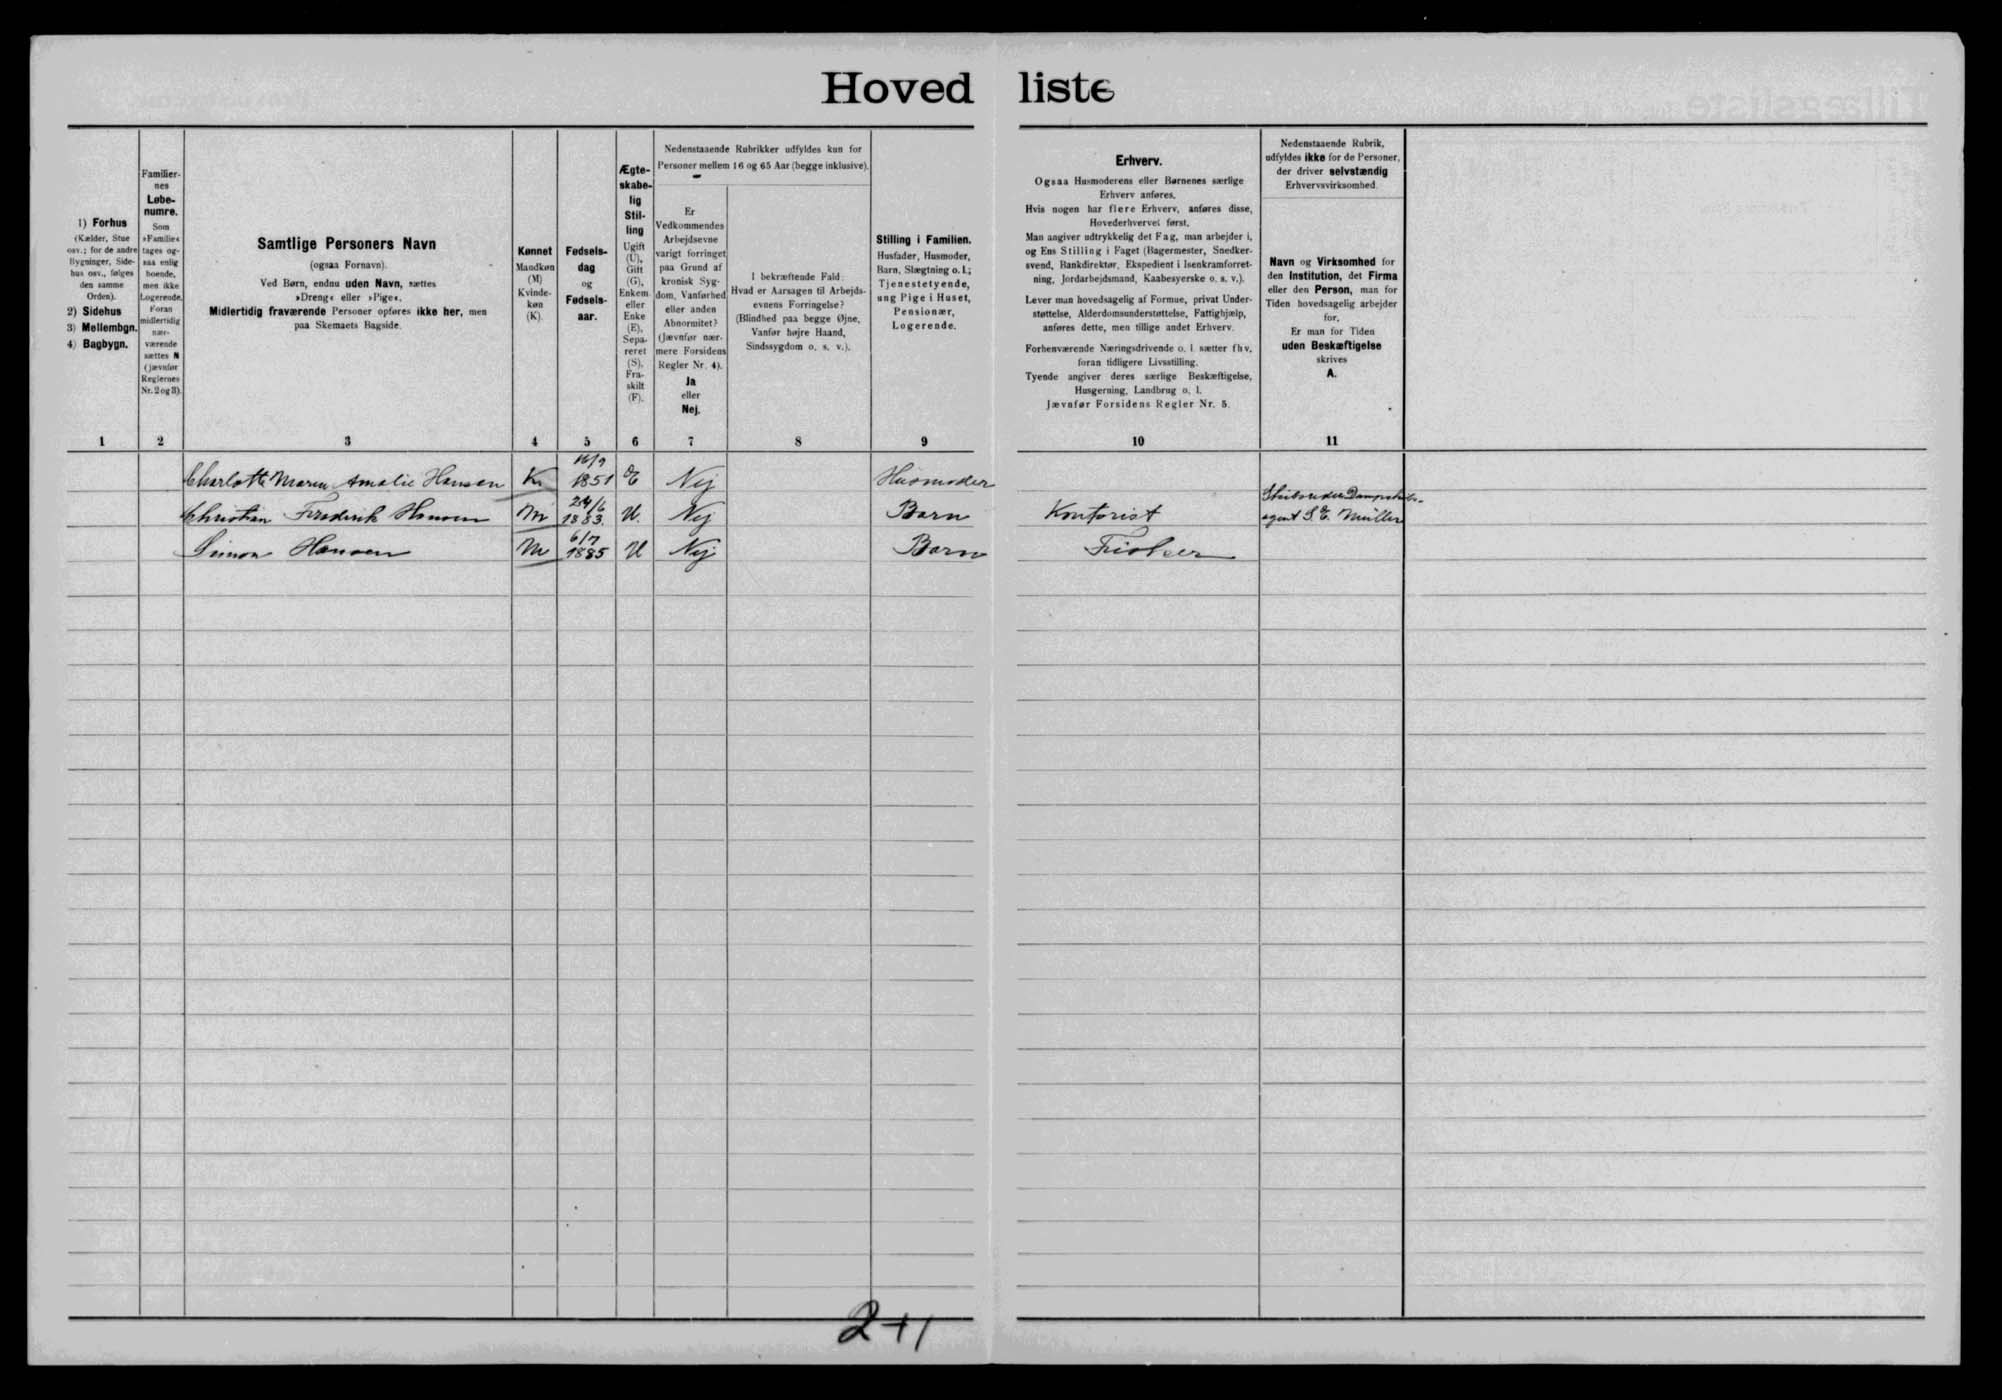 Hovedliste
1) Forhus
(Kælder, Stue
osv.; for de andre
Bygninger, Side-
hus osv., følges
den samme
Orden).
2) Sidehus
3) Mellembgn.
4) Bagbygn.
Familier-
nes
Løbe-
numre.
Som
»Familie«
tages og-
saa enlig
boende,
men ikke
Logerende.
Foran
midlertidig
nær-
værende
sættes N
(jævnfør
Reglernes
Nr. 2 og 3).
Samtlige Personers Navn
(ogsaa Fornavn).
Ved Børn, endnu uden Navn, sættes
»Dreng« eller »Pige«.
Midlertidig fraværende Personer opføres ikke her, men
paa Skemaets Bagside.
Kønnet
Mandkøn
(M)
Kvinde-
køn
(K).
Fødsels-
dag
og
Fødsels-
aar.
Ægte-
skabe-
lig
Stil-
ling
Ugift
(U),
Gift
(G),
Enkem.
eller
Enke
(E),
Sepa-
reret
(S),
Fra-
skilt
(F).
Nedenstaaende Rubrikker udfyldes kun for
Personer mellem 16 og 65 Aar (begge inklusive).
Er
Vedkommendes
Arbejdsevne
varigt forringet
paa Grund af
kronisk Syg-
dom, Vanførhed
eller anden
Abnormitet?
(Jævnfør nær-
mere Forsidens
Regler Nr. 4).
Ja
eller
Nej.
I bekræftende Fald:
Hvad er Aarsagen til Arbejds-
evnens Forringelse?
(Blindhed paa begge Øjne,
Vanfør højre Haand,
Sindssygdom o. s. v.).
Stilling i Familien.
Husfader, Husmoder,
Barn, Slægtning o. l.;
Tjenestetyende,
ung Pige i Huset,
Pensionær,
Logerende.
Erhverv.
Ogsaa Husmoderens eller Børnenes særlige
Erhverv anføres.
Hvis nogen har flere Erhverv, anføres disse,
Hovederhvervet først.
Man angiver udtrykkelig det Fag, man arbejder i,
og Ens Stilling i Faget (Bagermester, Snedker-
svend, Bankdirektør, Ekspedient i Isenkramforret-
ning, Jordarbejdsmand, Kaabesyerske o. s. v.).
Lever man hovedsagelig af Formue, privat Under-
støttelse, Alderdomsunderstøttelse, Fattighjælp,
anføres dette, men tillige andet Erhverv.
Forhenværende Næringsdrivende o. l. sætter fhv.
foran tidligere Livsstilling.
Tyende angiver deres særlige Beskæftigelse,
Husgerning, Landbrug o. l.
Jævnfør Forsidens Regler Nr. 5.
Nedenstaaende Rubrik,
udfyldes ikke for de Personer,
der driver selvstændig
Erhvervsvirksomhed.
Navn og Virksomhed for
den Institution, det Firma
eller den Person, man for
Tiden hovedsagelig arbejder
for.
Er man for Tiden
uden Beskæftigelse
skrives
A.
1 2 3 4 5 6 7 8 9 10 11
Charlotte Maren Amalie Hansen K 16/9 1851 E Nej Husmoder
Christian Frederik Hansen M 24/6 1883. U. Nej Barn Kontorist agent S. E. Müller
Simon Hansen M 6/7 1885 U Nej Barn Fisker
2+1